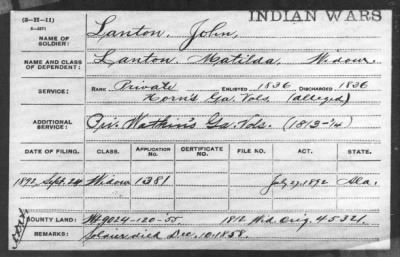 INDIAN WARS
(3-H-11)
NAME OF SOLDIER: Lanton, John,
NAME AND CLASS OF DEPENDENT: Lanton, Matilda, Widow.
SERVICE: RANK Private ENLISTED 1836 DISCHARGED 1836
Horn's Ga. Vols. (alleged)
ADDITIONAL SERVICE: Pri. Watkin's Ga. Vols. (1813-14)
DATE OF FILING. CLASS. APPLICATION NO. CERTIFICATE NO. FILE NO. ACT. STATE.
1892, Sept. 24 Widow 1381 July 27, 1892 Ala.
BOUNTY LAND: Wt. 9024-120-55 1812 Wid. Orig. 45321.
REMARKS: Soldier died Dec. 10, 1858.